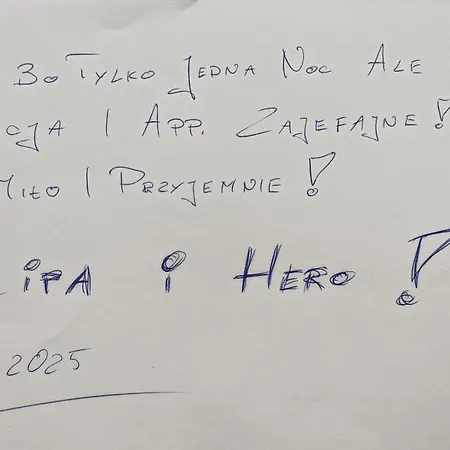 Bo Tylko Jedna Noc Ale
cja I App. Zajefajne!
Miło I Przyjemnie!
ipa i Hero!
2025